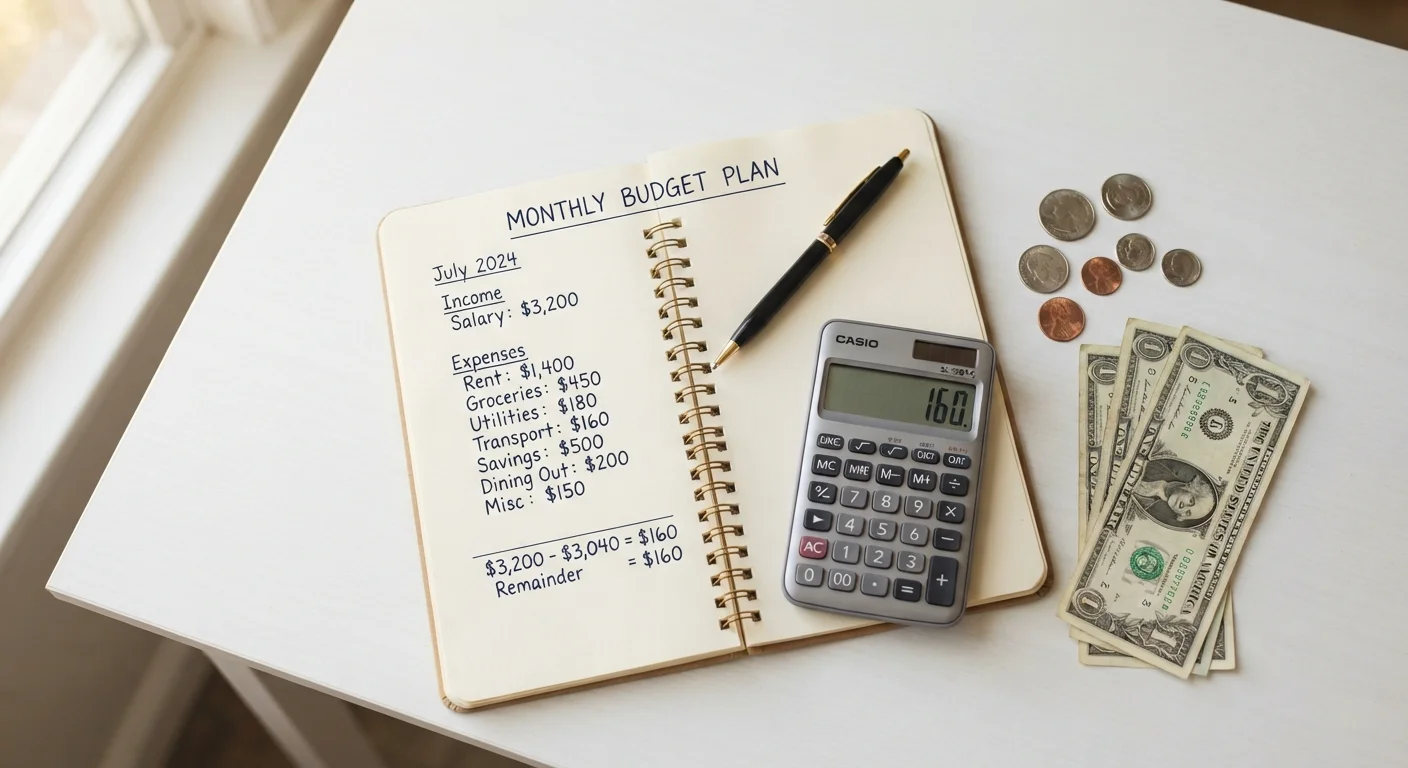 MONTHLY BUDGET PLAN
July 2024
Income
Salary: $3,200
Expenses
Rent: $1,400
Groceries: $450
Utilities: $180
Transport: $160
Savings: $500
Dining Out: $200
Misc: $150
$3,200 - $3,040 = $160
Remainder = $160
CASIO
160.
MC M- M+ ÷
% 7 8 9 ×
▶ 4 5 6 −
AC 1 2 3 +
0 00 · =
1